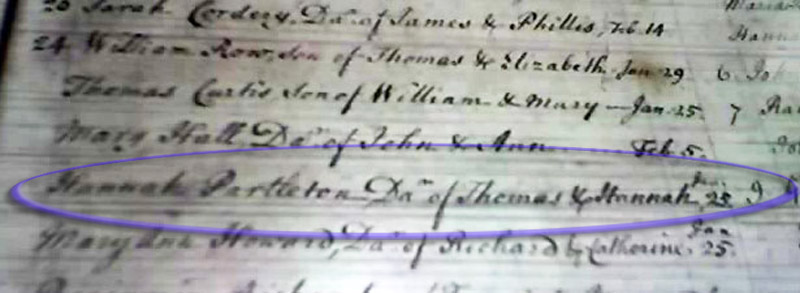 20 Sarah Cordery, Da.r of James & Phillis, Feb. 14
24. William Row, Son of Thomas & Elizabeth, Jan. 29 6
Thomas Curtis, Son of William & Mary — Jan. 25. 7
Mary Hall Da.r of John & Ann Feb. 5.
Hannah Partleton Da.r of Thomas & Hannah Jan. 25 9
Mary Ann Howard, Da.r of Richard & Catherine. Jan 25.